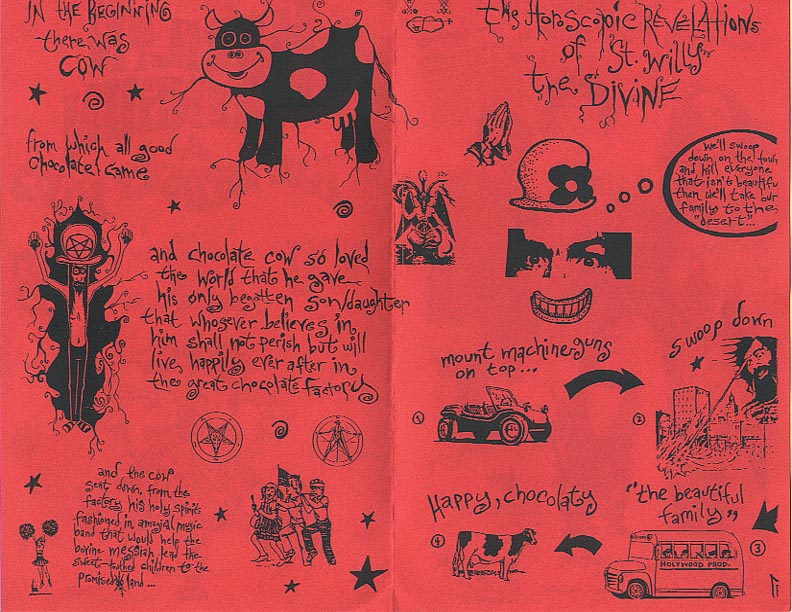 IN the BEGINNING
there was
COW
from which all good
Chocolate! came
and chocolate cow so loved
the world that he gave
his only begotten son/daughter
that whosever believes in
him shall not perish but will
live happily ever after in
the great chocolate factory
and the cow
sent down, from the
factory his holy spirits
fashioned in music
band that would help the
bovine messiah lead the
sweet-toothed children to the
promised land...
the Horoscopic Revelations
of "St. Willy"
the DIVINE
we'll swoop
down on the town
and kill everyone
that isn't beautifu
then we'll take our
family to the
"desert"...
mount machineguns
on top...
1
swoop down
2
"the beautiful
family"
3
HOLYWOOD PROD.
Happy, chocolaty
4